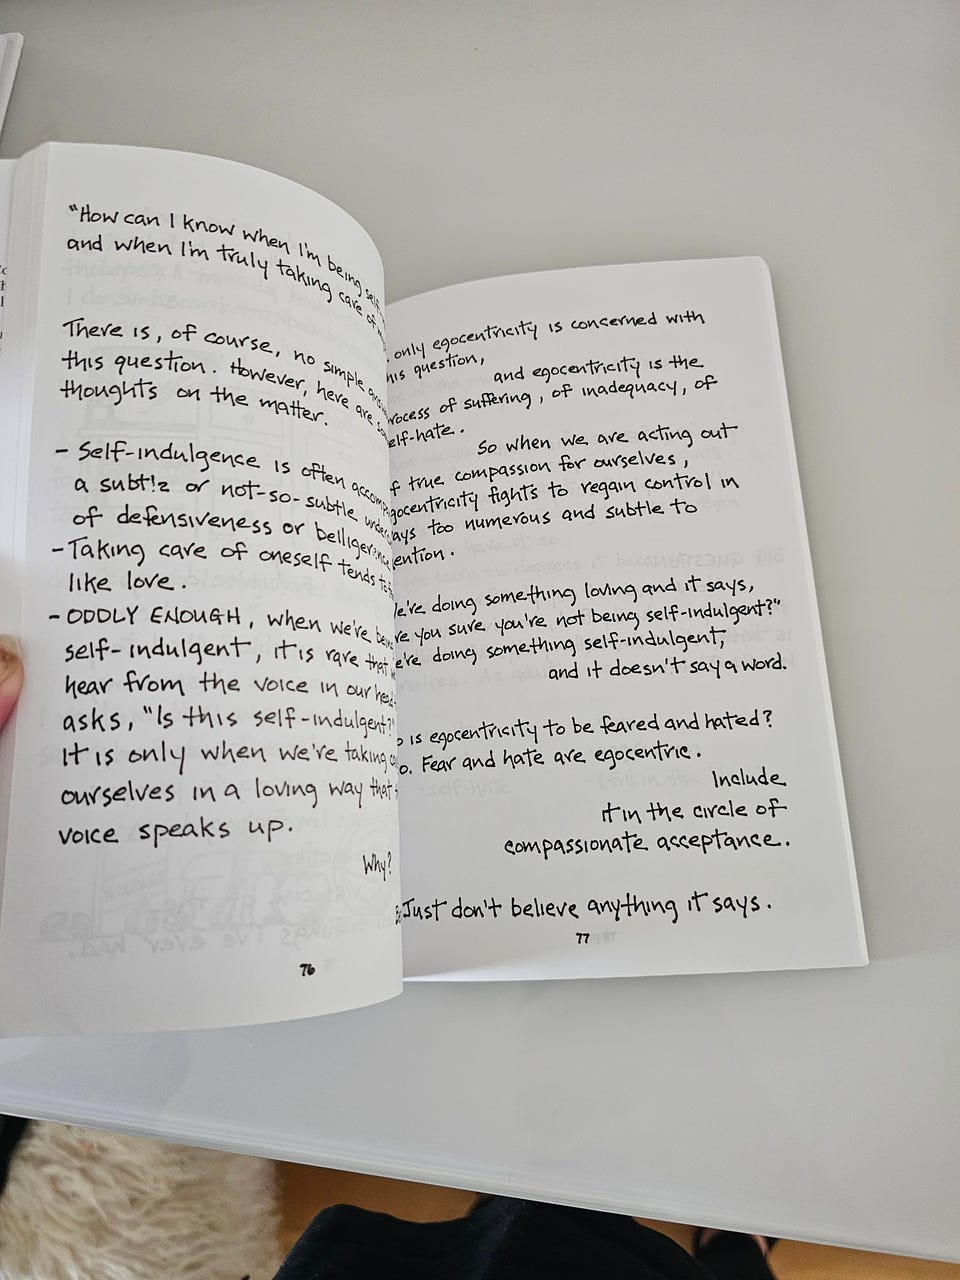 "How can I know when I'm being self-
and when I'm truly taking care of
There is, of course, no simple
this question. However, here are
thoughts on the matter.
- Self-indulgence is often
a subtle or not-so-subtle
of defensiveness or belligerence
- Taking care of oneself tends to
like love.
- ODDLY ENOUGH, when we're
self-indulgent, it is rare that
hear from the voice in our
asks, "Is this self-indulgent?"
It is only when we're taking
ourselves in a loving way that
voice speaks up.
Why?
76
only egocentricity is concerned with
question,
and egocentricity is the
of suffering, of inadequacy, of
-hate.
So when we are acting out
true compassion for ourselves,
fights to regain control in
too numerous and subtle to
doing something loving and it says,
you sure you're not being self-indulgent?"
doing something self-indulgent,
and it doesn't say a word.
is egocentricity to be feared and hated?
Fear and hate are egocentric.
Include
it in the circle of
compassionate acceptance.
Just don't believe anything it says.
77